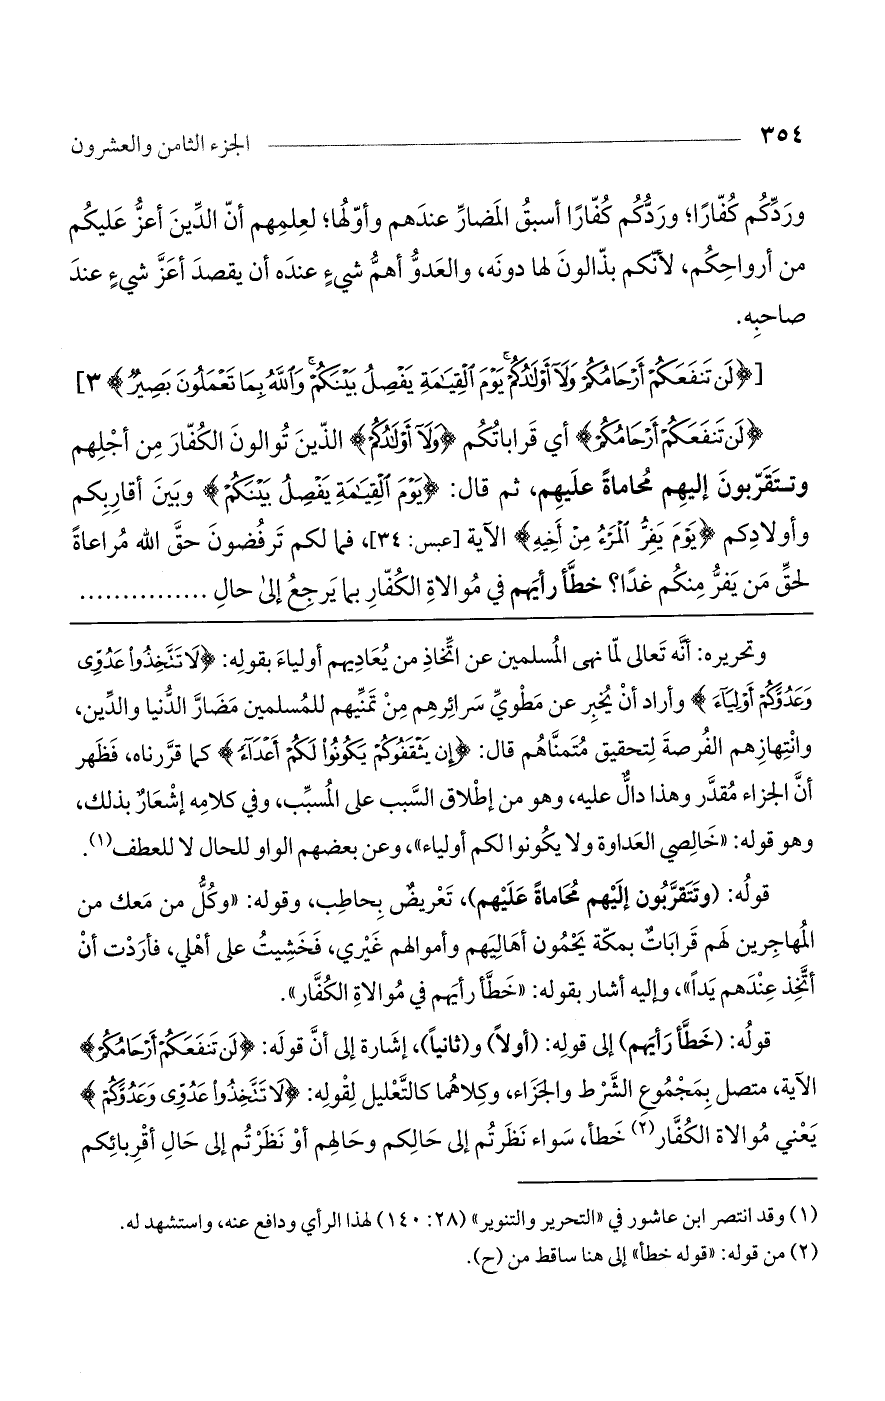 ٣٥٤ الجزء الثامن والعشرون
ورَدِّكُم كُفّارًا؛ وردُّكُم كُفّارًا أسبقُ المَضارِّ عندَهم وأوّلُها؛ لعِلمِهم أنّ الدِّينَ أعزُّ عَليكُم
من أرواحِكُم، لأنّكم بذّالونَ لها دونَه، والعَدوُّ أهمُّ شيءٍ عندَه أن يقصدَ أعَزَّ شيءٍ عندَ
صاحبِه.
[﴿لَن تَنفَعَكُمْ أَرْحَامُكُمْ وَلَآ أَوْلَٰدُكُمْ ۚ يَوْمَ ٱلْقِيَٰمَةِ يَفْصِلُ بَيْنَكُمْ ۚ وَٱللَّهُ بِمَا تَعْمَلُونَ بَصِيرٌ﴾ ٣]
﴿لَن تَنفَعَكُمْ أَرْحَامُكُمْ﴾ أي قَراباتُكُم ﴿وَلَآ أَوْلَٰدُكُمْ﴾ الذّينَ تُوالونَ الكُفّارَ مِن أجْلِهم
وتـتَقَرّبونَ إليهِم مُحاماةً علَيهِم، ثم قال: ﴿يَوْمَ ٱلْقِيَٰمَةِ يَفْصِلُ بَيْنَكُمْ﴾ وبَينَ أقارِبِكم
وأولادِكم ﴿يَوْمَ يَفِرُّ ٱلْمَرْءُ مِنْ أَخِيهِ﴾ الآية [عبس: ٣٤]، فما لكم تَرفُضونَ حقَّ الله مُراعاةً
لحقِّ مَن يَفرُّ مِنكُم غدًا؟ خطَّأ رأيَهم في مُوالاةِ الكُفّارِ بما يَرجِعُ إلىٰ حالِ ...............
وتحريره: أنَّه تَعالى لمّا نهى المُسلمين عن اتِّخاذِ من يُعَادِيهم أولياءَ بقولِه: ﴿لَا تَنَّخِذُوا۟ عَدُوِّى
وَعَدُوَّكُمْ أَوْلِيَآءَ﴾ وأراد أنْ يُخبِر عن مَطْوِيِّ سَرائرِهم مِنْ تمَنِّيهم للمُسلمين مَضَارَّ الدُّنيا والدِّين،
وانْتِهازِهم الفُرصةَ لِتحقيق مُتَمنّاهُم قال: ﴿إِن يَثْقَفُوكُمْ يَكُونُوا۟ لَكُمْ أَعْدَآءً﴾ كما قرَّرناه، فَظَهر
أنَّ الجزاء مُقدَّر وهذا دالٌّ عليه، وهو من إطْلاق السَّبب على المُسبِّب، وفي كلامِه إشْعَارٌ بذلك،
وهو قوله: «خَالِصِي العَداوة ولا يكُونوا لكم أولياء»، وعن بعضهم الواو للحال لا للعطف(١).
قولُه: (وتَتَقرَّبُون إلَيْهم مُحَاماةً عَلَيْهم)، تَعْريضٌ بِحاطِب، وقوله: «وكُلُّ من مَعك من
المُهاجرين لَهم قَرابَاتٌ بمكّة يَحْمُون أهَالِيَهم وأموالهم غَيْري، فَخَشِيتُ على أهْلي، فأرَدْت أنْ
أتَّخِذ عِنْدَهم يَداً»، وإليه أشار بقوله: «خَطَّأ رأيَهم في مُوالاةِ الكُفَّار».
قولُه: (خَطَّأ رَأيَهم) إلى قولِه: (أولاً) و(ثانياً)، إشَارة إلى أنَّ قولَه: ﴿لَن تَنفَعَكُمْ أَرْحَامُكُمْ﴾
الآية، متصل بِمَجْمُوعِ الشَّرْط والجَزَاء، وكِلاهُما كالتَّعْليل لِقْولِه: ﴿لَا تَنَّخِذُوا۟ عَدُوِّى وَعَدُوَّكُمْ﴾
يَعْني مُوالاة الكُفَّار(٢) خَطأ، سَواء نَظَرتُم إلى حَالِكم وحَالهم أوْ نَظَرْتُم إلى حَالِ أقْرِبائِكم
(١) وقد انتصر ابن عاشور في «التحرير والتنوير» (٢٨: ١٤٠) لهذا الرأي ودافع عنه، واستشهد له.
(٢) من قوله: «قوله خطأ» إلى هنا ساقط من (ح).